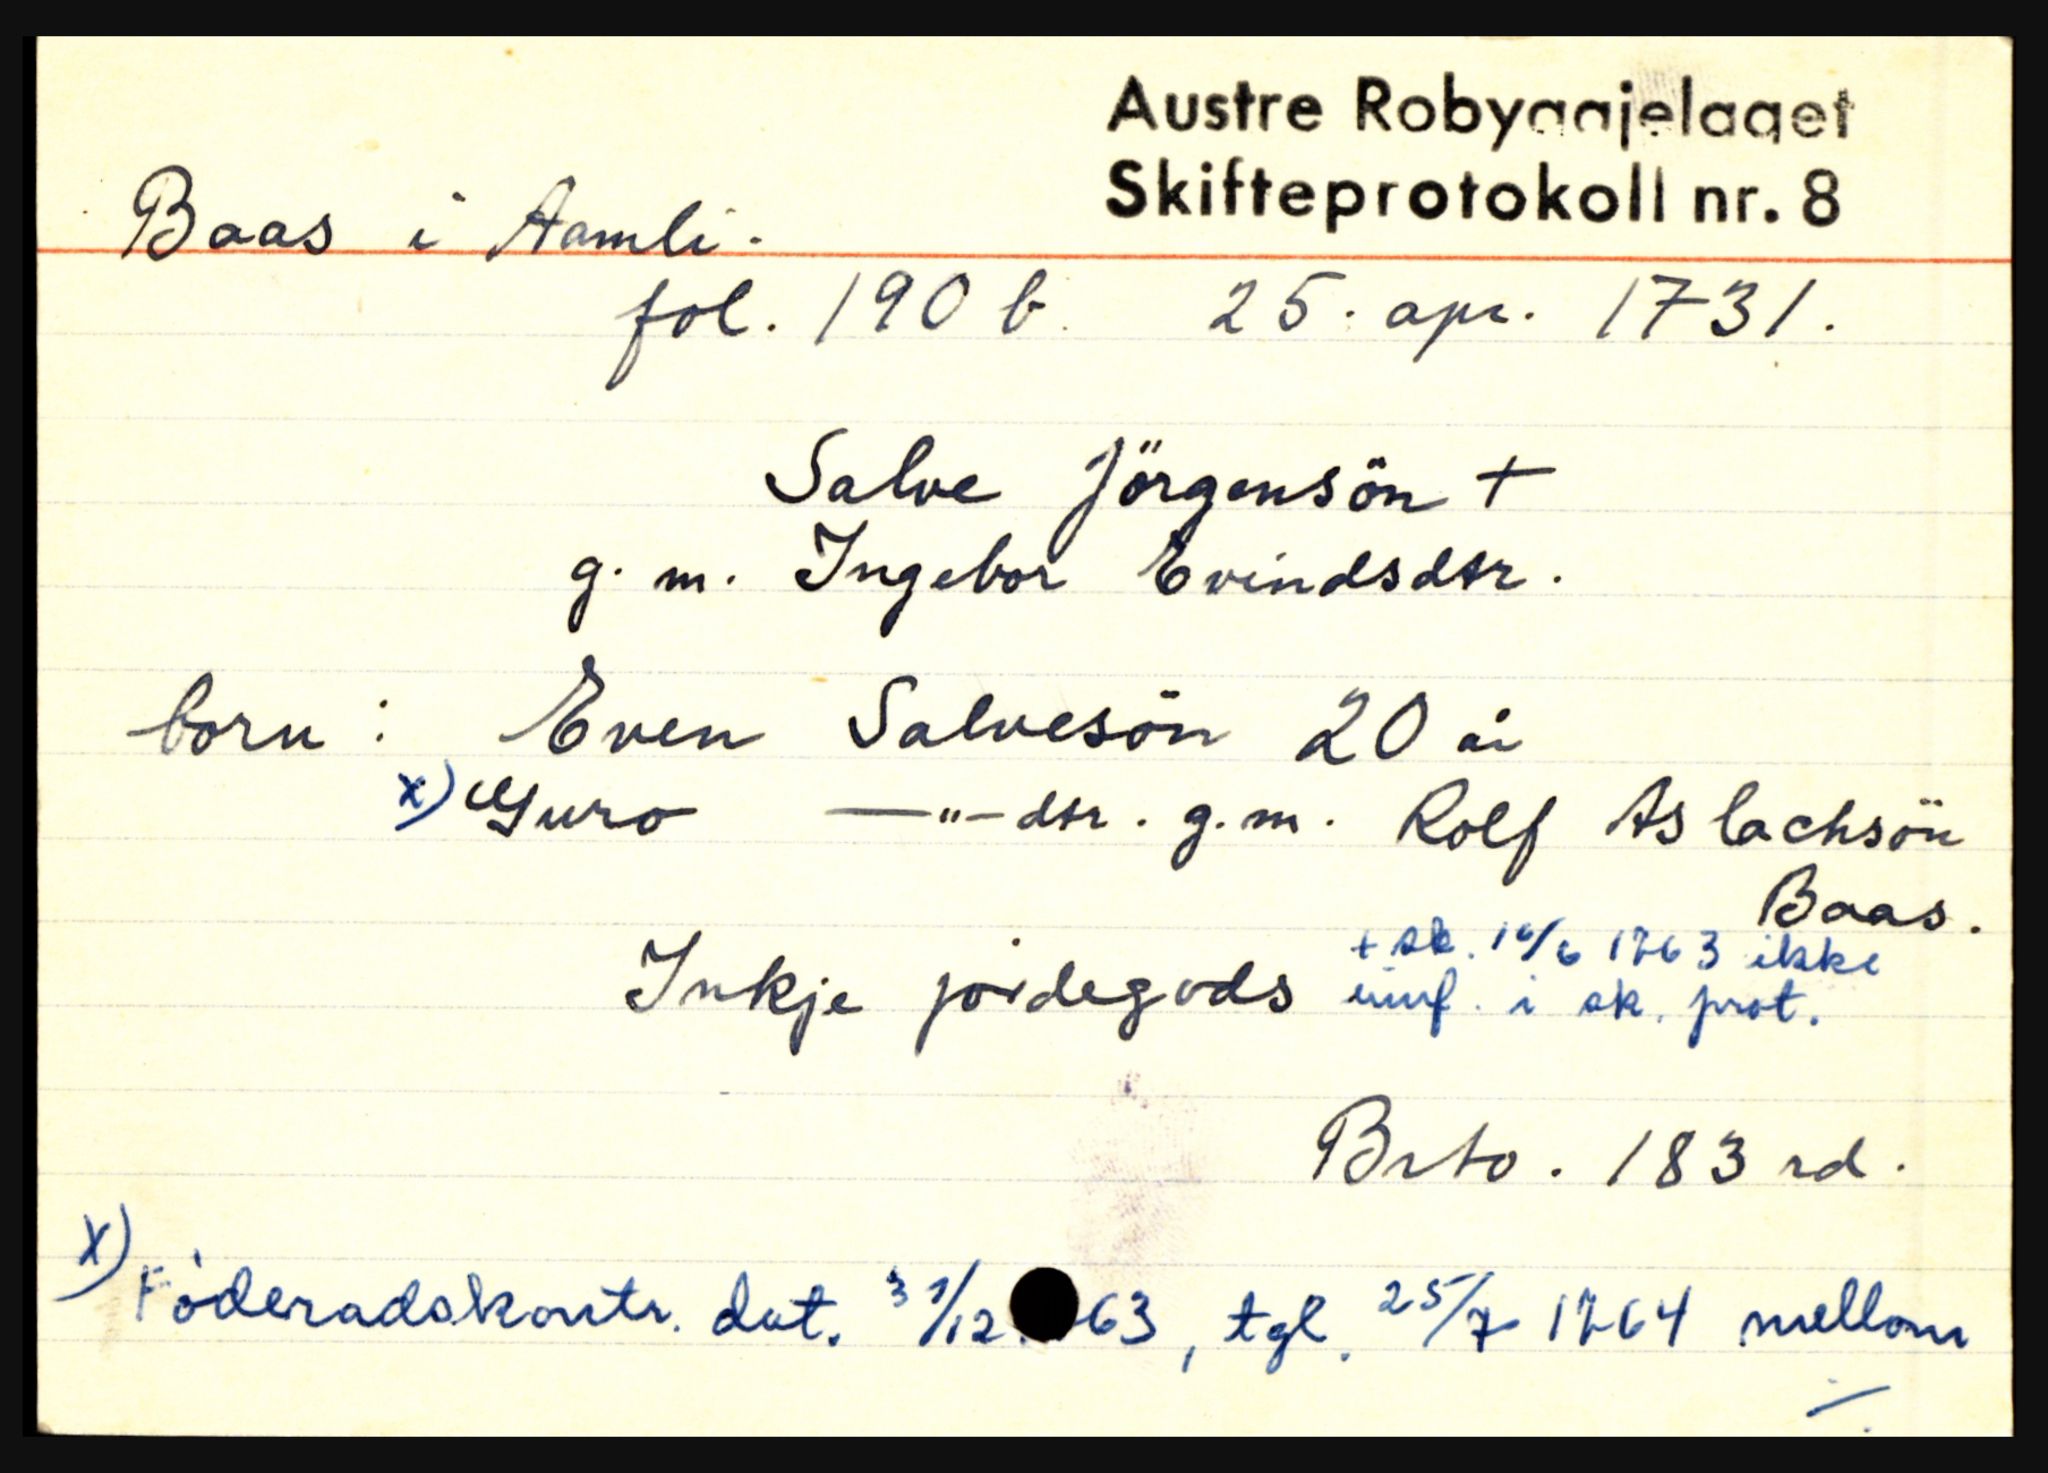 Austre Robyggjelaget
Skifteprotokoll nr. 8
Baas i Aamli.
fol. 190 b. 25. apr. 1731.
Salve Jörgensön +
g. m. Ingebor Evindsdtr.
born : Even Salvesön 20 år
x) Guro —"— dtr. g. m. Rolf Aslachsön
Baas.
+ sk. 16/6 1763 ikke
Inkje jordegods innf. i sk. prot.
Brto. 183 rd.
x) Föderadskontr. dat. 31/12 63, tgl. 25/7 1764 mellom